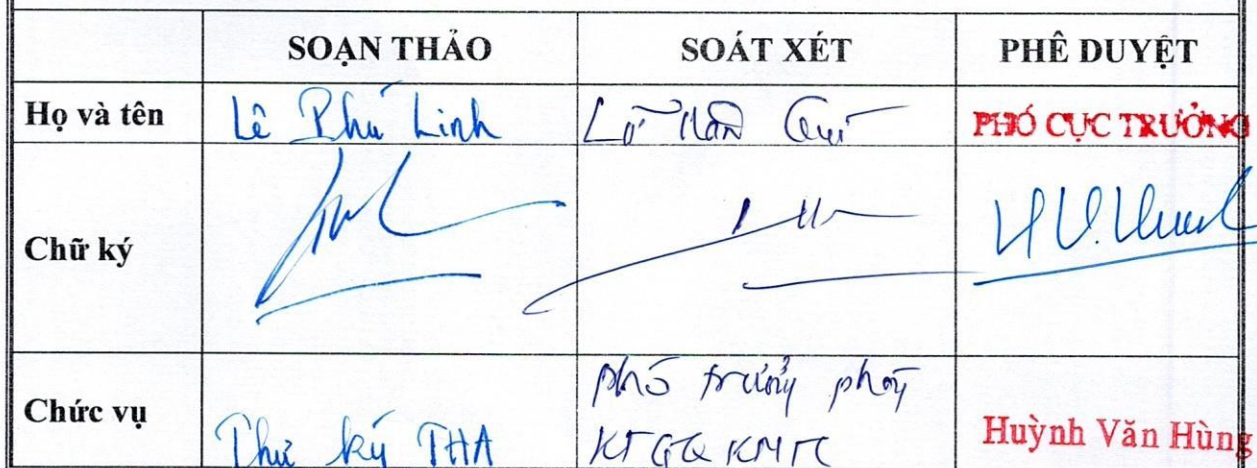 SOẠN THẢO SOÁT XÉT PHÊ DUYỆT
Họ và tên Lê Phú Linh PHÓ CỤC TRƯỞNG
Chữ ký
Chức vụ Thư ký THA Phó trưởng phòng
KTGQKNTC Huỳnh Văn Hùng